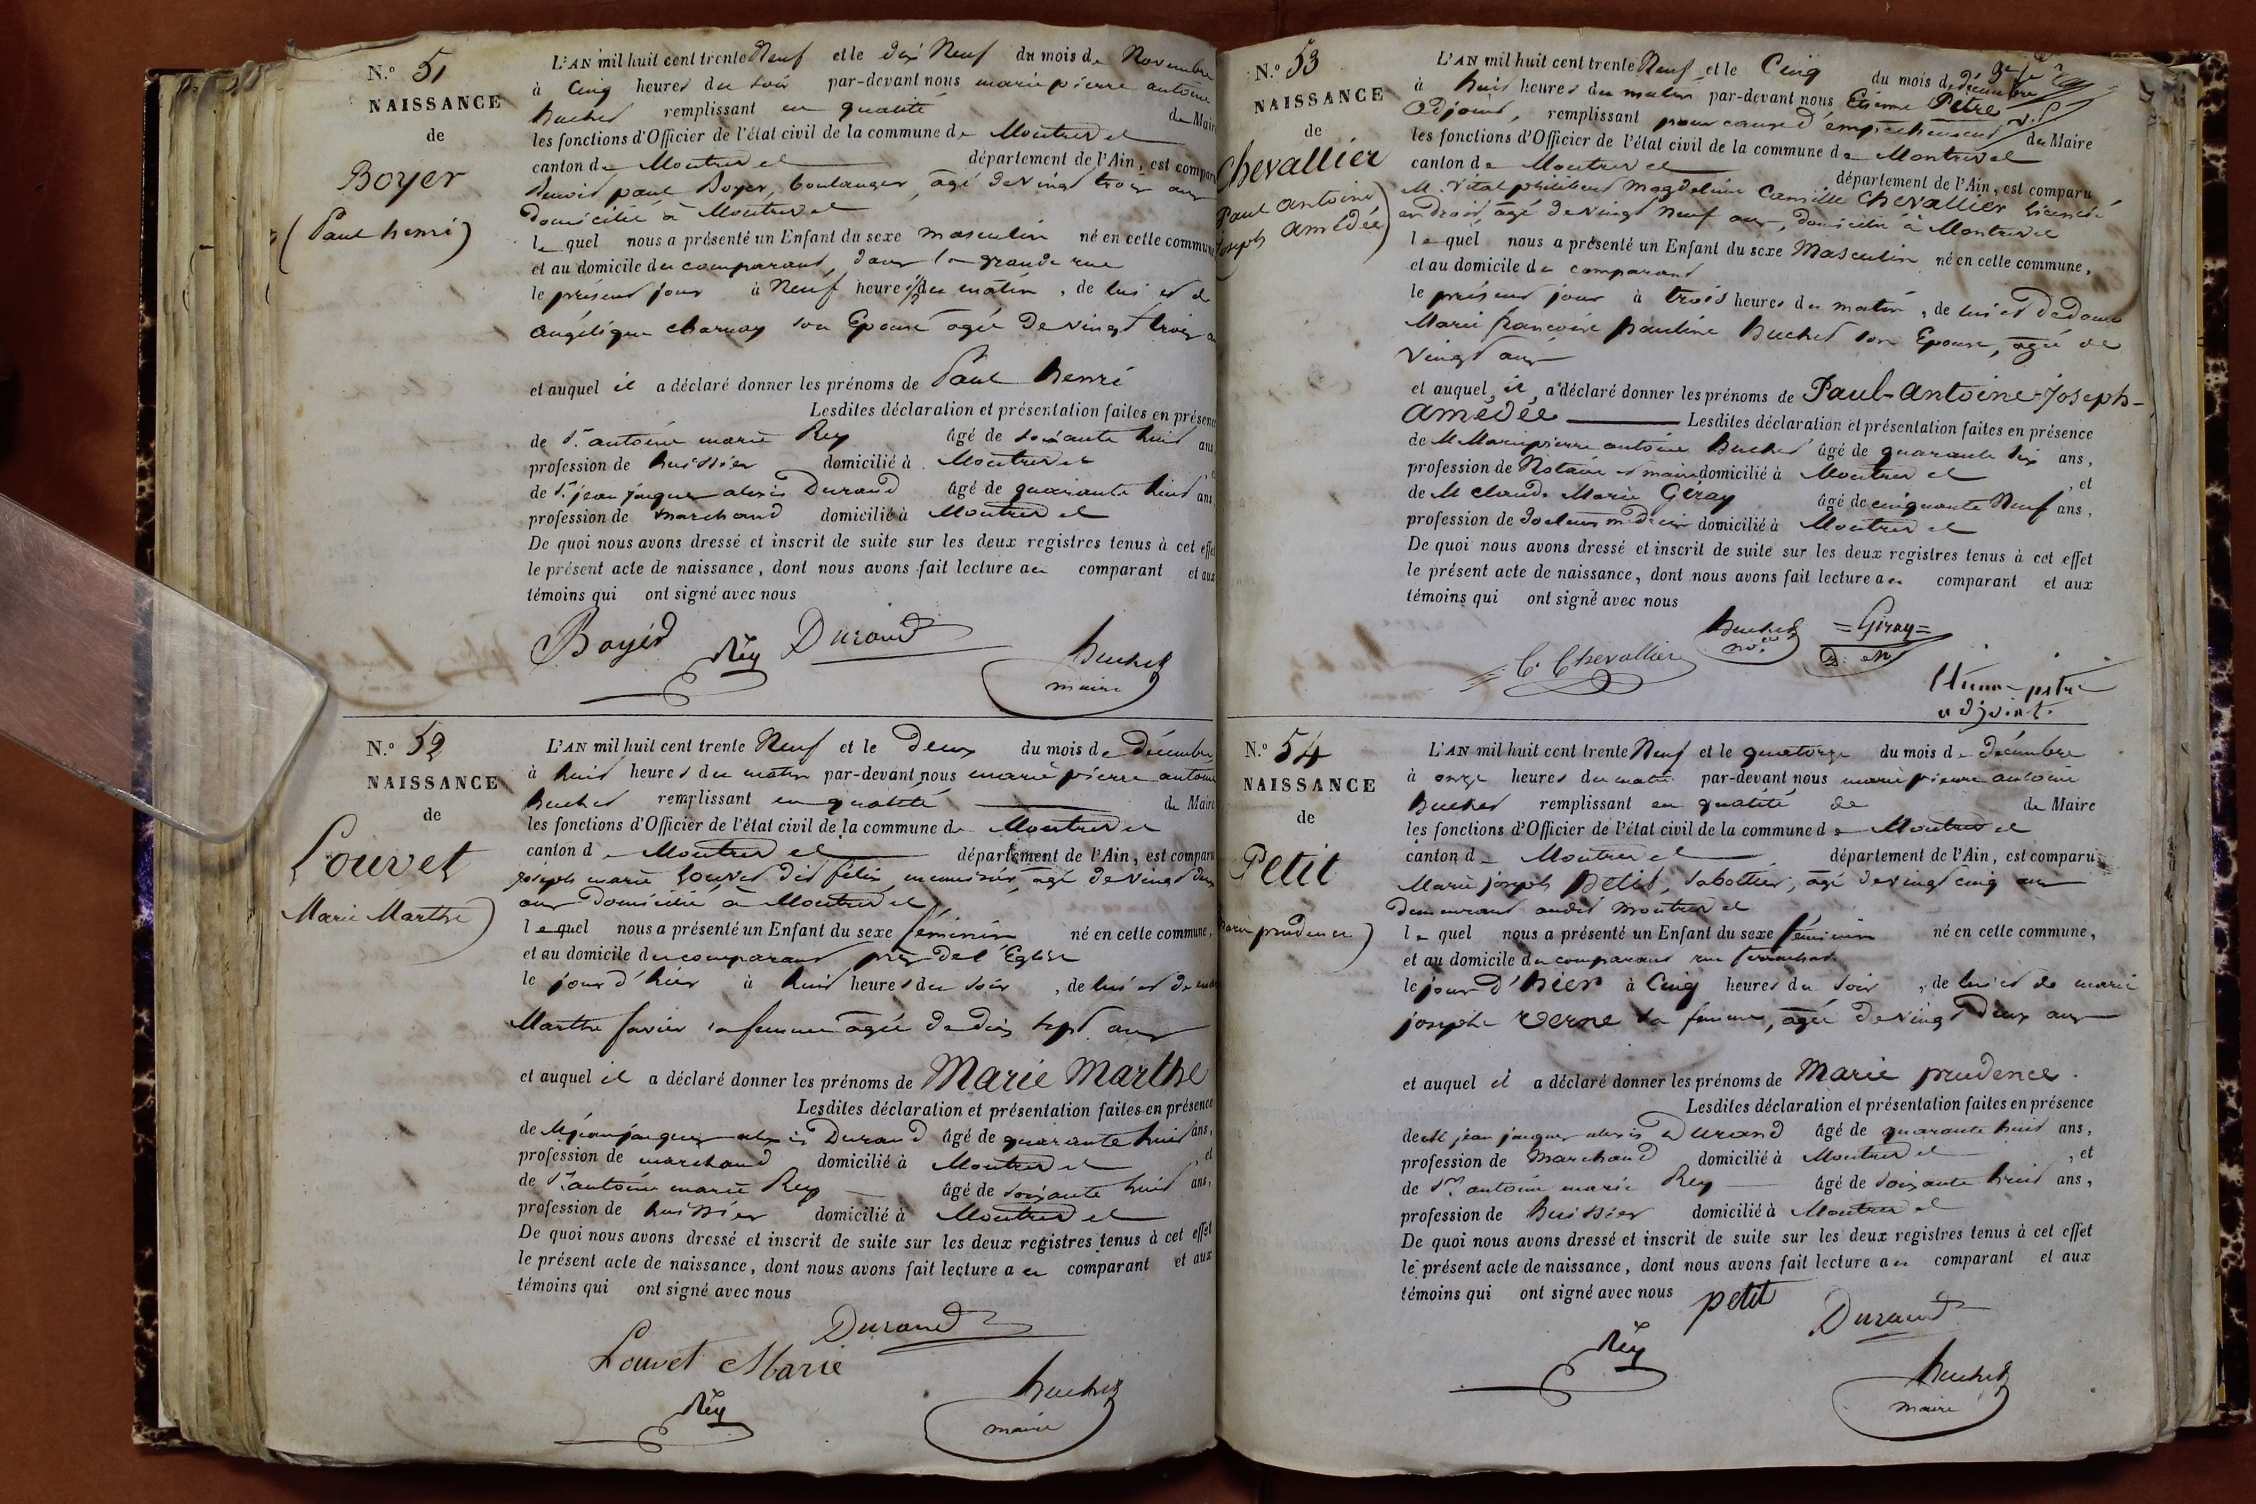 N.º 51
NAISSANCE
de
Boyer
(Paul henri)
L'AN mil huit cent trente Neuf et le dix Neuf du mois de Novembre
à Cinq heures du soir par-devant nous marie pierre antoine
huchet remplissant en qualité de Maire
les fonctions d'Officier de l'état civil de la commune de Montrevel
canton de Montrevel département de l'Ain, est comparu
Benoit paul Boyer, boulanger, âgé de vingt trois ans
domicilié à Montrevel
le quel nous a présenté un Enfant du sexe masculin né en cette commune
et au domicile du comparant, dans la grande rue
le présent jour à Neuf heures du matin, de lui et de
angélique charnay son Epouse agée De vingt trois
et auquel il a déclaré donner les prénoms de Paul henri
Lesdites déclaration et présentation faites en présence
de Sr. antoine marie Rey âgé de soixante huit ans
profession de huissier domicilié à Montrevel
de Sr. jean jacques alexis Durand âgé de quarante huit ans
profession de marchand domicilié à Montrevel
De quoi nous avons dressé et inscrit de suite sur les deux registres tenus à cet effet
le présent acte de naissance, dont nous avons fait lecture au comparant et aux
témoins qui ont signé avec nous
Boyer Rey Durand huchet
maire
N.º 52
NAISSANCE
de
Louvet
Marie Marthe)
L'AN mil huit cent trente Neuf et le Deux du mois de Décembre
à huit heures du matin par-devant nous marie pierre antoine
huchet remplissant en qualité de Maire
les fonctions d'Officier de l'état civil de la commune de Montrevel
canton de Montrevel département de l'Ain, est comparu
joseph marie Louvet dit félix, menuisier, âgé de vingt deux
ans Domicilié à Montrevel
le quel nous a présenté un Enfant du sexe féminin né en cette commune,
et au domicile du comparant près de l'Eglise
le jour d'hier à huit heures du soir, de lui et de
Marthe favier sa femme agée de dix sept ans
et auquel il a déclaré donner les prénoms de Marie Marthe
Lesdites déclaration et présentation faites en présence
de M jean jacques alexis Durand âgé de quarante huit ans,
profession de marchand domicilié à Montrevel, et
de Sr. antoine marie Rey âgé de soixante huit ans,
profession de huissier domicilié à Montrevel
De quoi nous avons dressé et inscrit de suite sur les deux registres tenus à cet effet
le présent acte de naissance, dont nous avons fait lecture au comparant et aux
témoins qui ont signé avec nous
Durand
Louvet Marie
Rey huchet
maire
N.º 53
NAISSANCE
de
Chevallier
Paul antoine
joseph amédée)
L'AN mil huit cent trente Neuf et le Cinq du mois de décembre
à huit heures du matin par-devant nous Etienne Pétre
adjoint, remplissant pour cause d'empêchement du Maire
les fonctions d'Officier de l'état civil de la commune de Montrevel
canton de Montrevel département de l'Ain, est comparu
M. vital philibert magdeleine Camille Chevallier licencié
en droit, âgé de vingt Neuf ans, domicilié à Montrevel
le quel nous a présenté un Enfant du sexe Masculin né en cette commune,
et au domicile du comparant
le présent jour à trois heures du matin, de lui et de dame
Marie françoise pauline huchet son Epouse, agée de
vingt ans
et auquel il a déclaré donner les prénoms de Paul-antoine-joseph-
amédée Lesdites déclaration et présentation faites en présence
de M Marie pierre antoine huchet âgé de quarante six ans,
profession de Notaire et maire domicilié à Montrevel, et
de M claude Marie Giray âgé de cinquante Neuf ans,
profession de docteur médecin domicilié à Montrevel
De quoi nous avons dressé et inscrit de suite sur les deux registres tenus à cet effet
le présent acte de naissance, dont nous avons fait lecture au comparant et aux
témoins qui ont signé avec nous
huchet =Giray=
C. Chevallier
Etienne petre
adjoint.
N.º 54
NAISSANCE
de
Petit
marie prudence)
L'AN mil huit cent trente Neuf et le quatorze du mois de décembre
à onze heures du matin par-devant nous marie pierre antoine
huchet remplissant en qualité de de Maire
les fonctions d'Officier de l'état civil de la commune de Montrevel
canton de Montrevel département de l'Ain, est comparu
Marie joseph Petit, sabottier, âgé de vingt cinq ans
demeurant audit montrevel
le quel nous a présenté un Enfant du sexe féminin né en cette commune,
et au domicile du comparant rue
le jour d'hier à Cinq heures du soir, de lui et de marie
josephe verne sa femme, agée de vingt Deux ans
et auquel il a déclaré donner les prénoms de Marie prudence.
Lesdites déclaration et présentation faites en présence
de M jean jacques alexis Durand âgé de quarante huit ans,
profession de Marchand domicilié à Montrevel, et
de Sr. antoine marie Rey âgé de soixante huit ans,
profession de huissier domicilié à Montrevel
De quoi nous avons dressé et inscrit de suite sur les deux registres tenus à cet effet
le présent acte de naissance, dont nous avons fait lecture au comparant et aux
témoins qui ont signé avec nous
petit Durand
Rey huchet
maire